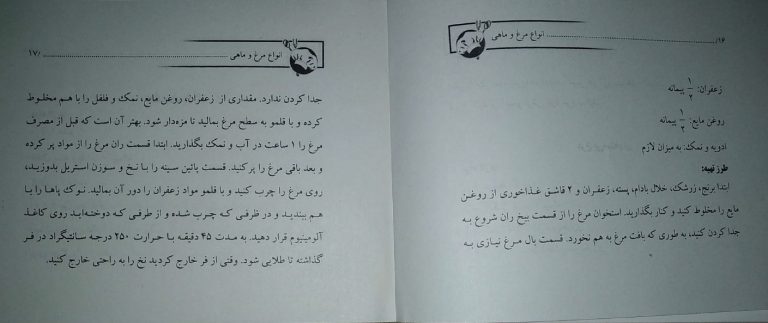 ۱۶/ انواع مرغ و ماهی
زعفران: ۱/۲ پیمانه
روغن مایع: ۱/۲ پیمانه
ادویه و نمک: به میزان لازم
طرز تهیه:
ابتدا برنج، زرشک، خلال بادام، پسته، زعفران و ۲ قاشق غذاخوری از روغن
مایع را مخلوط کنید و کنار بگذارید. استخوان مرغ را از قسمت بیخ ران شروع به
جدا کردن کنید، به طوری که بافت مرغ به هم نخورد. قسمت بال مرغ نیازی به
انواع مرغ و ماهی ۱۷/
جدا کردن ندارد. مقداری از زعفران، روغن مایع، نمک و فلفل را با هم مخلوط
کرده و با قلمو به سطح مرغ بمالید تا مزه‌دار شود. بهتر آن است که قبل از مصرف
مرغ را ۱ ساعت در آب و نمک بگذارید. ابتدا قسمت ران مرغ را از مواد پر کرده
و بعد باقی مرغ را پر کنید. قسمت پائین سینه را با نخ و سوزن استریل بدوزید،
روی مرغ را چرب کنید و با قلمو مواد زعفران را دور آن بمالید. نوک پاها را با
هم ببندید و در ظرفی که چرب شده و از طرفی که دوخته‌اید روی کاغذ
آلومینیوم قرار دهید. به مدت ۴۵ دقیقه با حرارت ۲۵۰ درجه سانتیگراد در فر
گذاشته تا طلایی شود. وقتی از فر خارج کردید نخ را به راحتی خارج کنید.